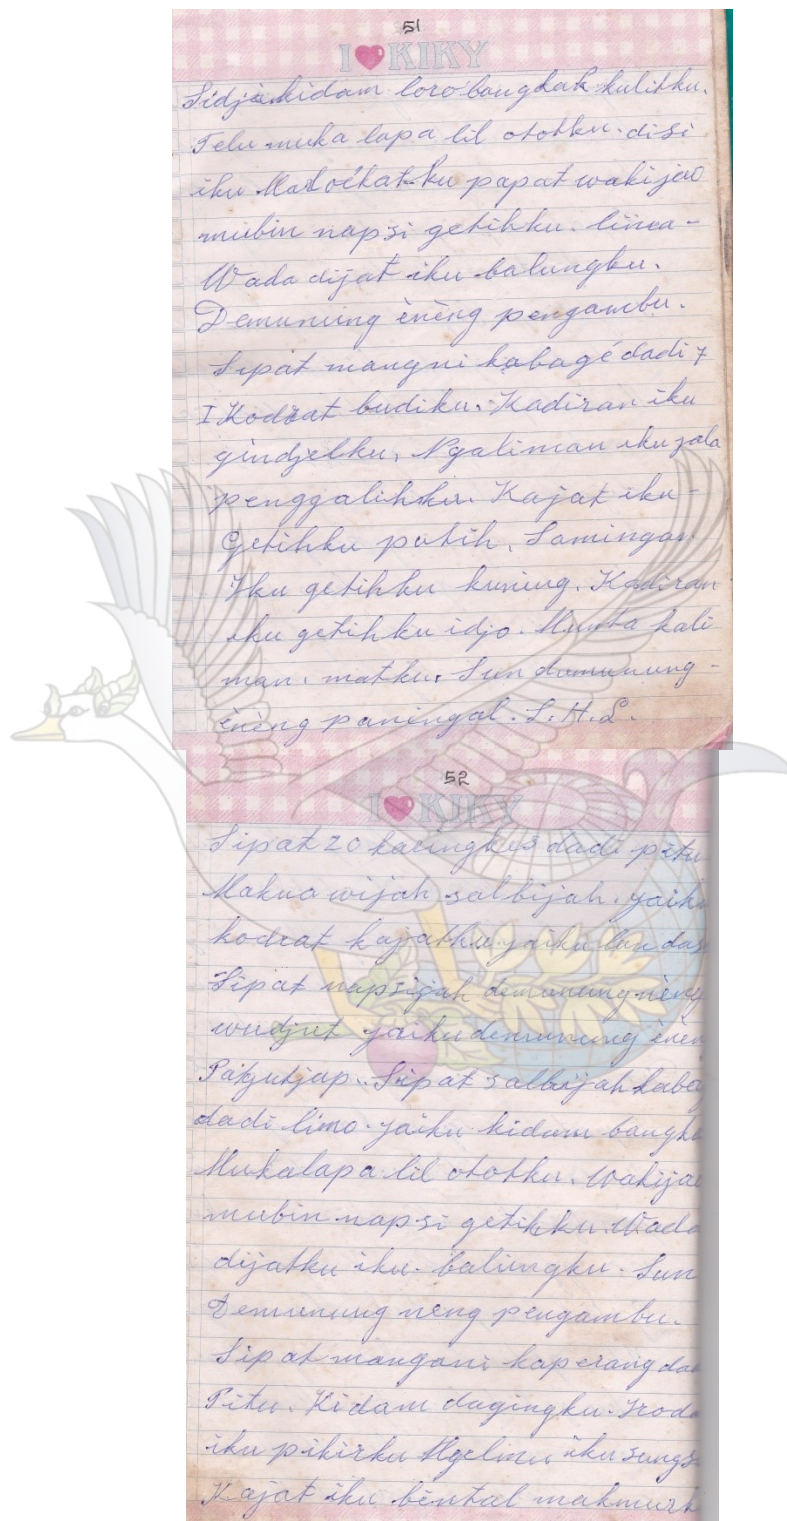 51
I ❤ KIKY
Sidji kidam loro bangkak kulitku.
Telu muka lapa lil ototku. disi
iku Maloékat-ku papat wakijao
mubin napsi getihku. linca-
Wada dijat iku balungku.
Demunung ènèng pengambu.
Sipat mangni kabagé dadi 7
I Kodrat budiku. Kadiran iku
gindjelku, Ngaliman iku jala
penggalihku. Kajat iku -
Getihku putih. Samingan
Iku getihku kuning. Kadiran
iku getihku idjo. Munta kali
man. matku. Sun dumunung -
ènèng paningal. S. H. S.
52
I ❤ KIKY
Sipat 20 karingkes dadi pitu
Makna wijah salbijah. jaiku
kodrat kajatku jaiku lan das
Sipat napsijah demunung nèng
wudjut jaiku demunung ènèn
Pangutjap. Sipat salbijah kabag
dadi limo. jaiku kidam bangka
Mukalapa lil ototku. Wakijao
mubin napsi getihku. Wada
dijatku iku. balungku. Sun
Demunung neng pengambu.
Sipat mangani kaperang dad
Pitu. Kidam dagingku. Iroda
iku pikirku Ngelmu iku sungs
Kajat iku bèntal makmurk